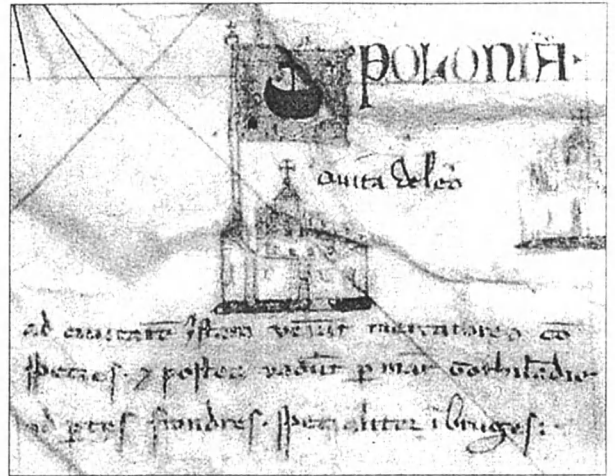 POLONIA·
ciuita de leō
ad ciuitatē istam veniūt mercatores cō
speties · ⁊ postea vadūt ꝑ mar̄ gothilādie
ad ꝑtes flandres · spetialiter ī bruges: